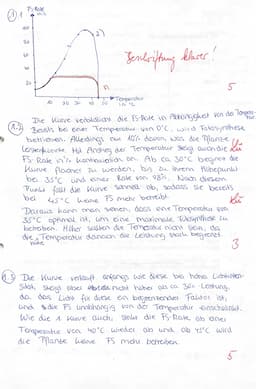 1.1
PS-Rate
a)
b)
Temperatur
in °C
Beschriftung klarer!
5
1.2 Die Kurve verdeutlicht die PS-Rate in Abhängigkeit von der
Bereits bei einer Temperatur von 0°C, wird Fotosynthese
betrieben. Allerdings nur 10% davon, was die Pflanze
der Temperatur steigt auch die
PS-Rate Ab ca 30° beginnt die
Kurve flacher zu werden, bis zu ihrem Höhepunkt
bei 35°C und einer Rate von 98%. Nach diesem
Punkt fällt die Kurve schnell ab, sodass sie bereits
bei 45°C keine PS mehr betreibt.
Daraus kann man sehen, dass eine Temperatur von
35°C optimal ist, um eine maximale Fotosynthese zu
betreiben. Höher sollten die Temperaturen nicht sein, da
die Temperatur danach die Leistung stark begrenzt.
3
1.3 Die Kurve verläuft anfangs wie diese bei hoher
steigt aber nicht höher als ca 30%
da das Licht für diese ein begrenzender Faktor ist,
und die PS unabhängig von der Temperatur einschränkt.
Wie die 1. Kurve auch, sinkt die PS-Rate ab einer
Temperatur von 40°C wieder ab und ab 45°C wird
die Pflanze keine PS mehr betreiben.
5